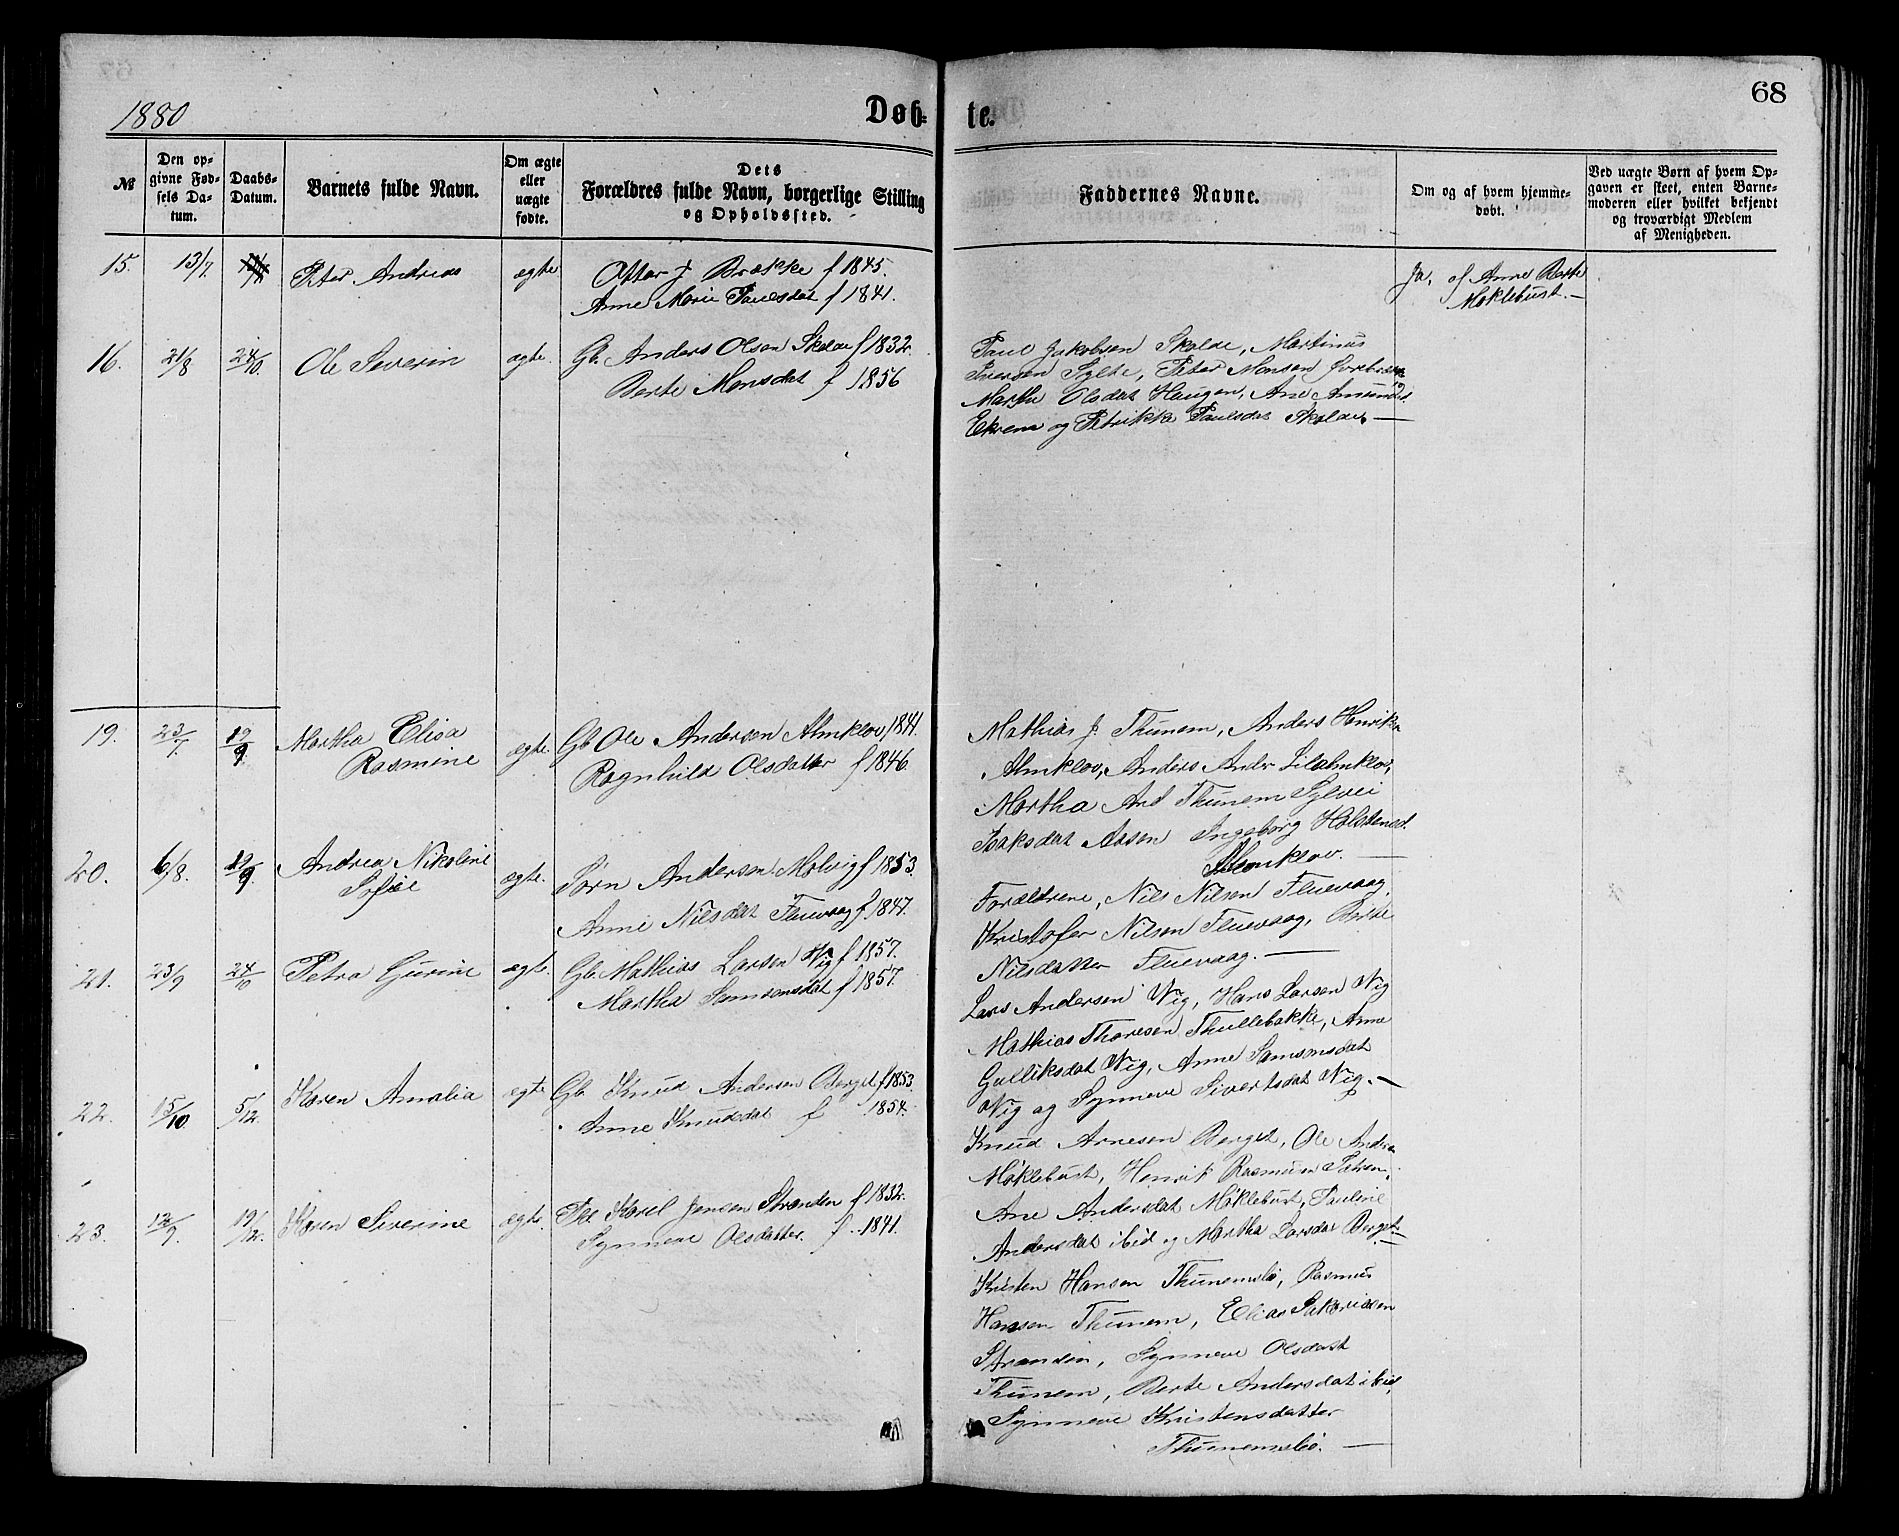 68
1880
Døb- te.
№
Den op-
givne Fød-
sels Da-
tum.
Daabs-
Datum.
Barnets fulde Navn.
Om ægte
eller
uægte
fødte.
Dets
Forældres fulde Navn, borgerlige Stilling
og Opholdssted.
Faddernes Navne.
Om og af hvem hjemme-
døbt.
Ved uægte Børn af hvem Op-
gaven er skeet, enten Barne-
moderen eller hvilket bekjendt
og troværdigt Medlem
af Menigheden.
15. 13/7 Peter Andreas ægte
Ottar J. Brække f 1845.
Anne Marie Paulsdat f 1841.
Ja, af Anne Berte
Møklebust.—
16. 21/8 24/10. Ole Severin ægte.
Gb. Anders Olsen Skolde f 1832.
Berte Monsdat f 1856
Paul Jakobsen Skolde, Martinus
Iversen Sylte, Peter Monsen
Marthe Olsdat Haugen, Ane Amunds
Ekrem og Petrikke Paulsdat Skolde.—
19. 23/7. 19/9 Martha Elisa
Rasmine
ægte.
Gb Ole Andersen Almklov, 1841.
Ragnhild Olsdatter f 1846.
Mathias J. Thunem, Anders Henriks
Almklov, Anders Andr Lilalmklov,
Martha And Thunem Sylvei
Isaksdat Aasen Ingeborg Holstensd.
Almklov.—
20. 6/8. 19/9. Andrea Nikoline
Sofie
ægte.
Sørn Andersen Molvig f 1853.
Anne Nilsdat Fluevaag f. 1847.
Forældrene, Nils Nilsen Fluevaag,
Kristofer Nilsen Fluevaag, Berte
Nilsdatter Fluevaag.—
21. 23/9 24/10 Petra Gurine ægte.
Gb. Mathias Larsen Vig f 1857.
Martha Samsonsdat f 1857.
Lars Andersen Vig, Hans Larsen Vig
Mathias Thoresen Thullebakke, Anne
Gulliksdat Vig, Anne Samsonsdat
Vig og Synneve Sivertsdat Vig.—
22. 15/10. 5/12. Karen Amalia ægte
Gb. Knud Andersen Berget f 1853.
Anne Knudsdat f 1854.
Knud Arnesen Berget, Ole Anders
Møklebust, Henrik Rasmusen
Ane Andersdat Møklebust, Pauline
Andersdat ibid og Martha Larsdat Berget.—
23. 12/9 19/12. Karen Severine ægte.
Karel Jensen Stranden f 1832.
Synneve Olsdatter. f. 1841.
Kristen Hansen Thunemslø, Rasmus
Hansen Thunem, Elias Sakariasen
Stranden, Synneve Olsdatt
Thunem, Berte Andersdat ibid,
Synneve Kristensdatter
Thunemslø.—